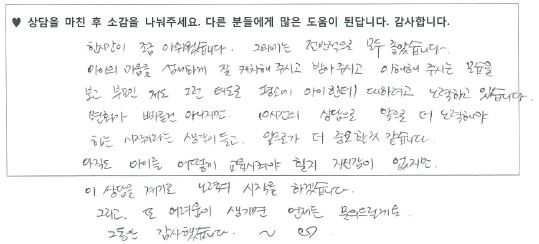 ♥ 상담을 마친 후 소감을 나눠주세요. 다른 분들에게 많은 도움이 된답니다. 감사합니다.
한시간이 조금 아쉬웠습니다. 그외에는 전반적으로 모두 좋았습니다.
아이의 마음을 섬세하게 잘 캐치해 주시고 받아주시고 이해해 주시는 모습을
보고 부모인 저도 그런 태도로 평소에 아이한테 대하려고 노력하고 있습니다.
변화가 빠른건 아니지만 10시간의 상담으로 앞으로 더 노력해야
하는 시작이라는 생각이 들고. 앞으로가 더 중요한것 같습니다.
아직도 아이를 어떻게 교육시켜야 할지 자신감이 없지만.
이 상담을 계기로 노력의 시작을 하겠습니다.
그리고, 또 어려움이 생기면 언제든 문의드릴게요.
그동안 감사했습니다. ~ ♡